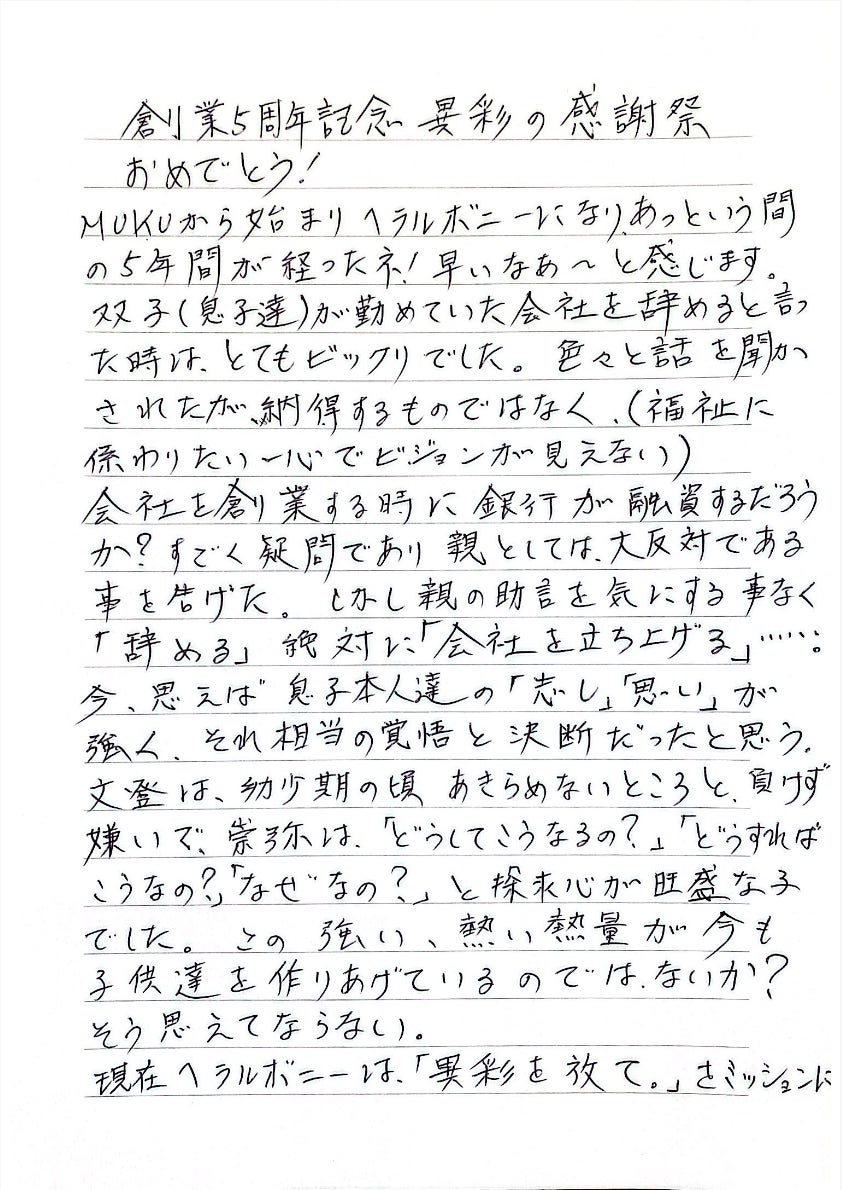 創業5周年記念 異彩の感謝祭
おめでとう!
MUKUから始まりヘラルボニーになり、あっという間
の5年間が経ったネ!早いなぁ〜と感じます。
双子(息子達)が勤めていた会社を辞めると言っ
た時は、とてもビックリでした。色々と話を聞か
されたが、納得するものではなく、(福祉に
係わりたい一心でビジョンが見えない)
会社を創業する時に銀行が融資するだろう
か?すごく疑問であり親としては、大反対である
事を告げた。しかし親の助言を気にする事なく
「辞める」絶対に「会社を立ち上げる」……。
今、思えば息子本人達の「志し」「思い」が
強く、それ相当の覚悟と決断だったと思う。
文登は、幼少期の頃あきらめないところと、負けず
嫌いで、崇弥は、「どうしてこうなるの?」「どうすれば
こうなの?」「なぜなの?」と探求心が旺盛な子
でした。この強い、熱い熱量が今も
子供達を作りあげているのでは、ないか?
そう思えてならない。
現在ヘラルボニーは、「異彩を放て。」をミッションに